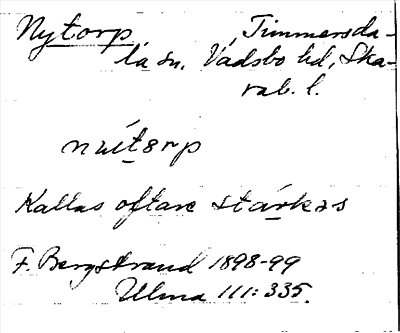 Nytorp, Timmersda-
la sn, Vadsbo hd, Ska-
rab. l.
nút8rp
Kallas oftare stárkəs
F. Bergstrand 1898-99
Ulma 111:335.